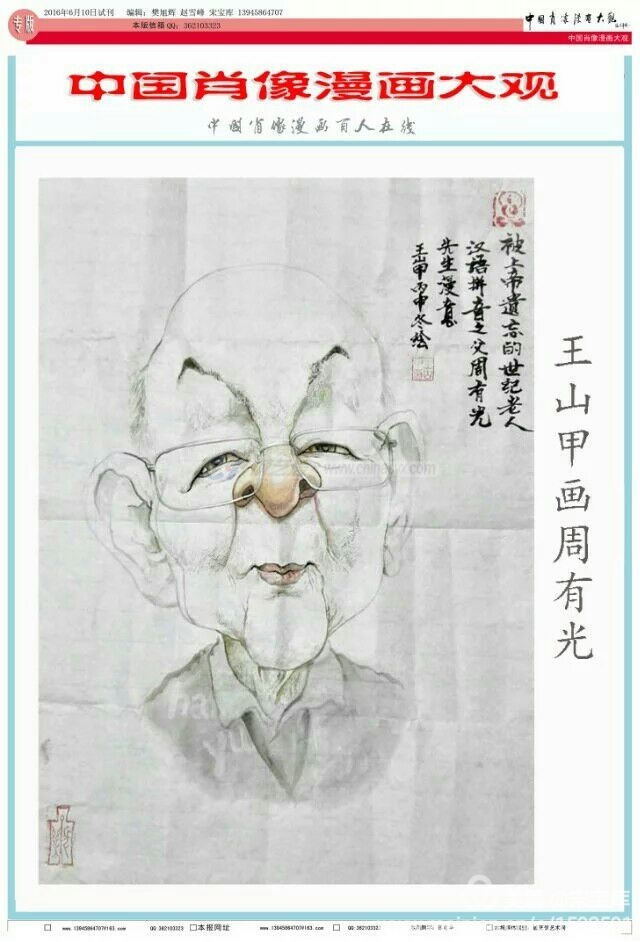 专版
2016年6月10日试刊 编辑：樊旭辉 赵雪峰 宋宝库 13945864707
本版信箱QQ：362103323
中国肖像漫画大观
中国肖像漫画大观
中国肖像漫画百人在线
被上帝遗忘的世纪老人
汉语拼音之父周有光
先生漫像
王山甲丙申冬绘
王山甲画周有光
www.13945864707@163.com QQ:362103323 本报网址 www.13945864707@163.com QQ:362103323